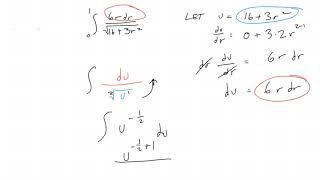 ∫₀¹ 6r dr / √(16+3r²)
LET u = 16+3r²
du/dr = 0 + 3·2r²⁻¹
dr du/dr = 6r dr
du = 6r dr
∫ du / ²√(u¹)
∫ u^(-1/2) du
u^(-1/2+1)